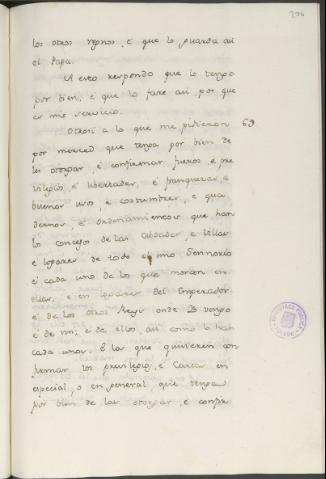 276
los otros regnos, é que lo guarda asi
el Papa.
A esto respondo que lo tengo
por bien, é que lo fare asi por que
es mio servicio.
Otrosi a lo que me pidieron 69
por merced que tenga por bien de
les otorgar, é confirmar fueros, é pre
vilegios, é libertades, é franquezas, é
buenos usos, é costumbres, é qua
dernos, é ordenamientos que han
los concejos de las Cibdades, é Villas
é logares de todo el mio Sennorio
é cada uno de los que moran en
ellas, é en logares del Emperador
é de los otros Reyes onde Yo vengo
é de mi; é de ellos, asi como lo han
cada unos. E los que quisieren con
firmar los previlegios, é Cartas en
especial, o en general, que tenga
por bien de las otorgar, é confir